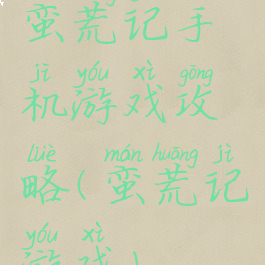 蛮荒记手
jī yóu xì gōng
机游戏攻
lüè mán huāng jì
略(蛮荒记
yóu xì
游戏)